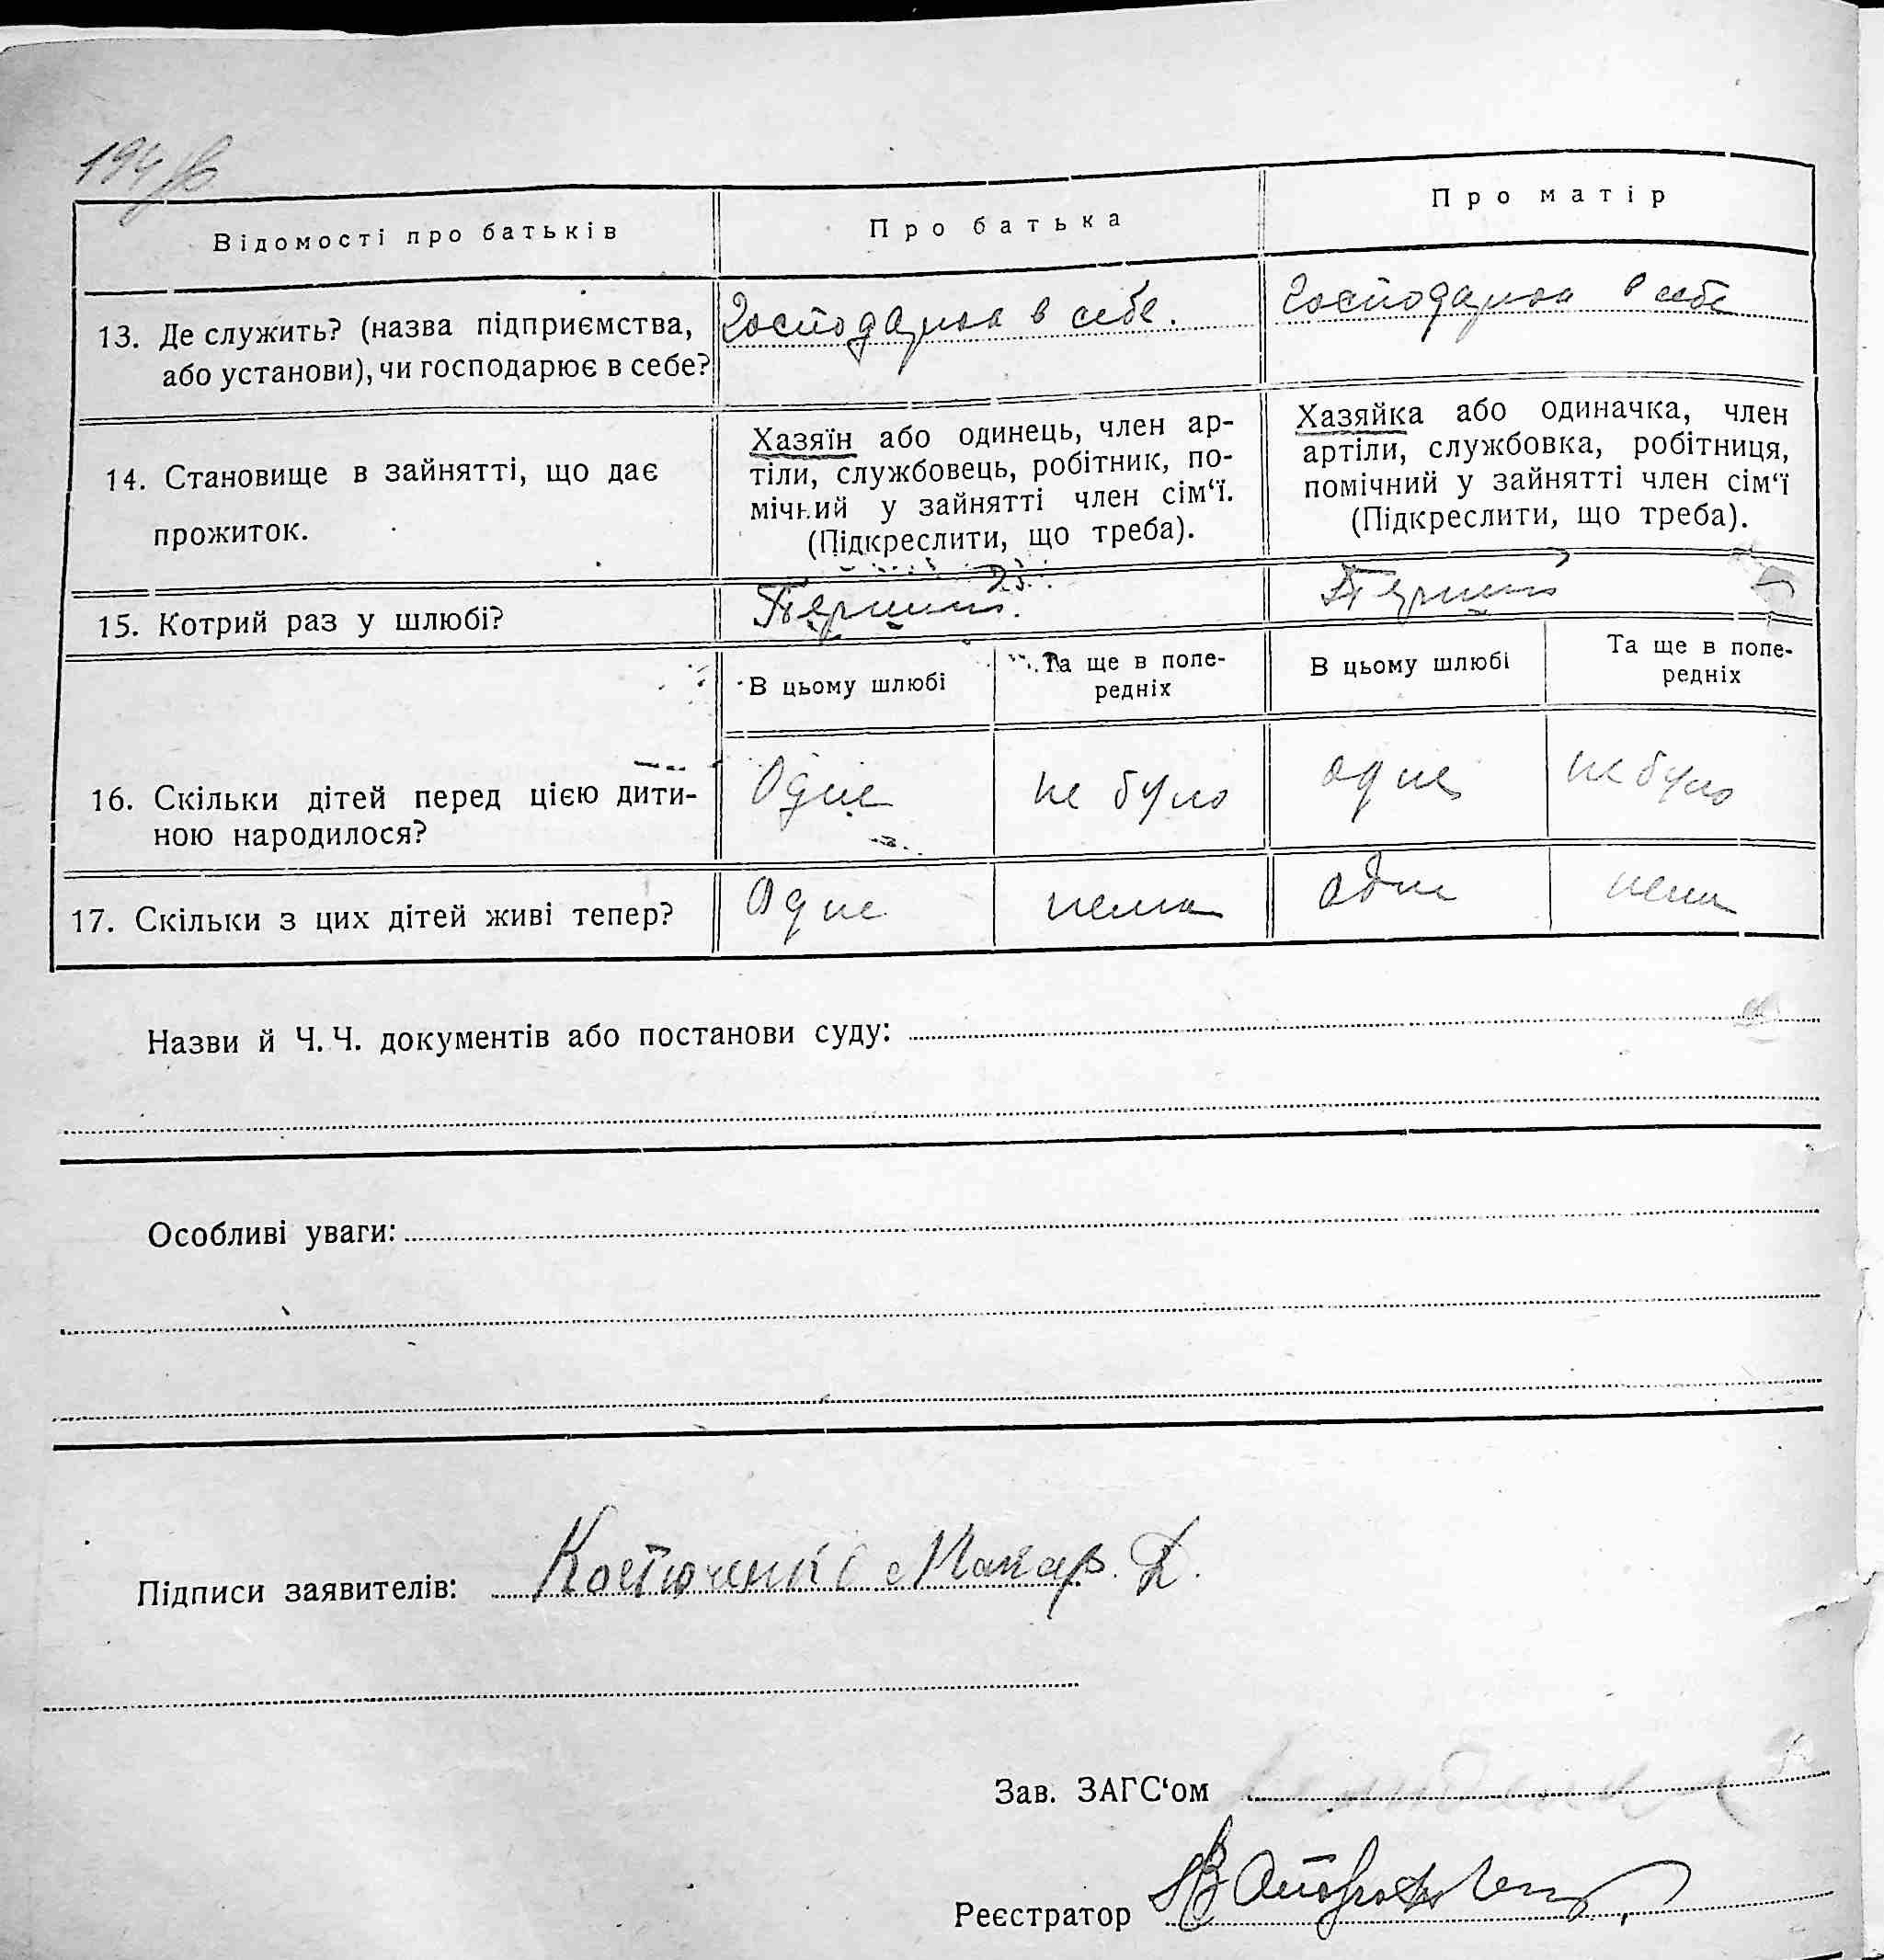 194
Відомості про батьків
Про батька
Про матір
13. Де служить? (назва підприємства,
або установи), чи господарює в себе?
Господарює в себе.
Господарює в себе
14. Становище в зайнятті, що дає
прожиток.
Хазяїн або одинець, член ар-
тіли, службовець, робітник, по-
мічний у зайнятті член сім‘ї.
(Підкреслити, що треба).
Хазяйка або одиначка, член
артіли, службовка, робітниця,
помічний у зайнятті член сім‘ї
(Підкреслити, що треба).
15. Котрий раз у шлюбі?
Перший.
Перший
В цьому шлюбі
Та ще в попе-
редніх
В цьому шлюбі
Та ще в попе-
редніх
16. Скільки дітей перед цією дити-
ною народилося?
Одне
не було
одне
не було
17. Скільки з цих дітей живі тепер?
Одне
нема
одне
нема
Назви й Ч. Ч. документів або постанови суду:
Особливі уваги:
Підписи заявителів: Костюченко Макар. Д.
Зав. ЗАГС‘ом
Реєстратор